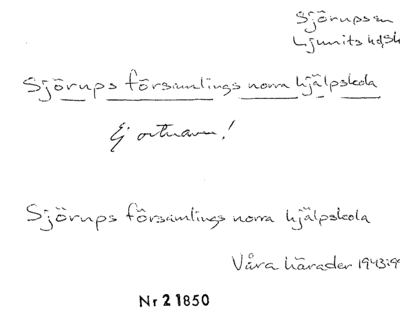 Sjörups sn
Ljunits hd, Sk
Sjörups församlings norra hjälpskola
Ej ortnamn!
Sjörups församlings norra hjälpskola
Våra härader 1943:99
Nr 21850